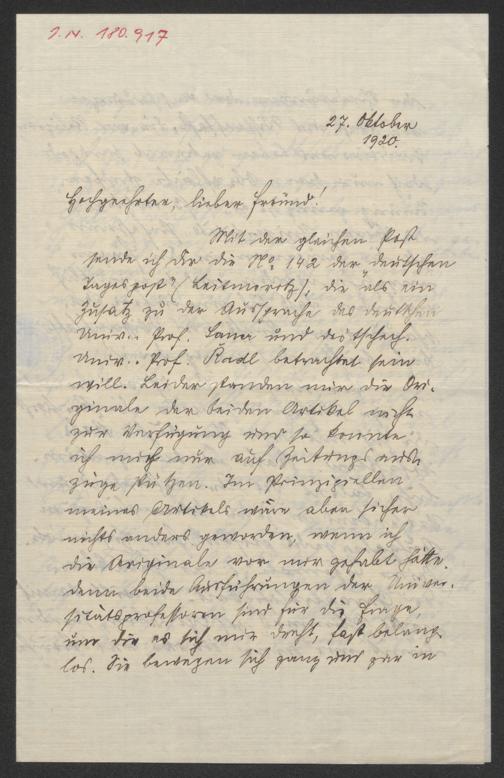 J.N. 180.917
27. Oktober
1920.
Hochgeehrter, lieber Freund!
Mit der gleichen Post
sende ich Dir die No. 142 der „deutschen
Tagespost" (Leitmeritz), die als ein
Zusatz zu der Aussprache des deutschen
Univ.. Prof. und des tschech.
Univ.. Prof. Radl betrachtet sein
will. Leider standen mir die Ori-
ginale der beiden Artikel nicht
zur Verfügung und so konnte
ich mich nur auf Zeitungsaus-
züge stützen. Im Prinzipiellen
meines Artikels wäre aber sicher
nichts anders geworden, wenn ich
die Originale vor mir gehabt hätte,
denn beide Ausführungen der Univer-
sitätsprofessoren sind für die Frage,
um die es sich mir dreht, fast belang-
los. Sie bewegen sich ganz und gar in